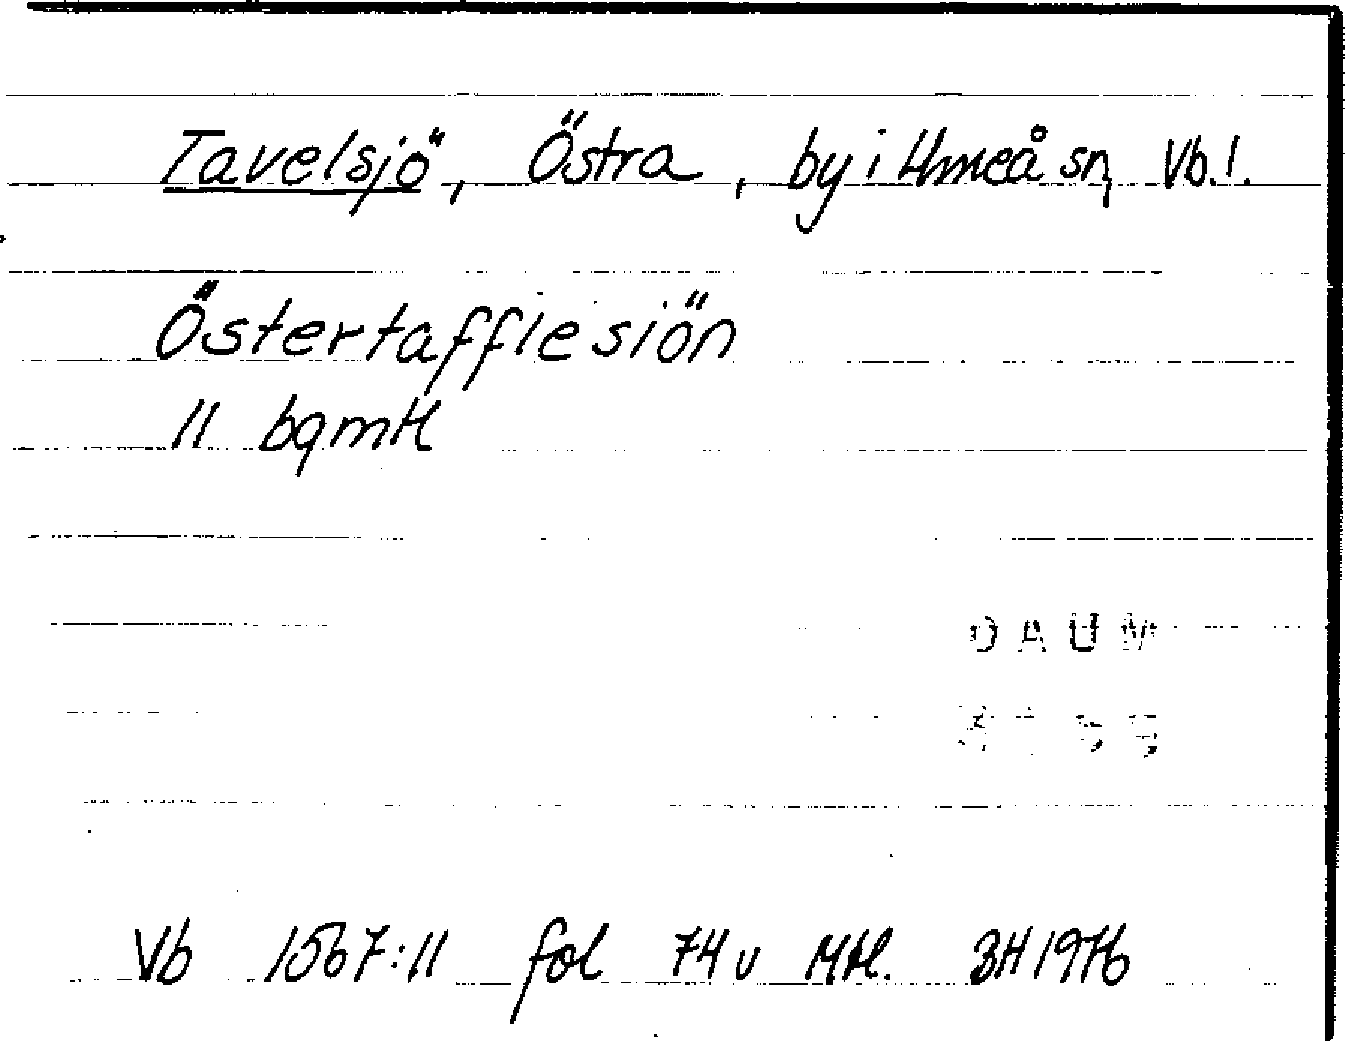 Tavelsjö, Östra, by i Umeå sn, Vb.l.
Östertaffiesiön
11 bqmtl
DAUM
Vb 1567:11 fol 74 v Mtl. BH 1976